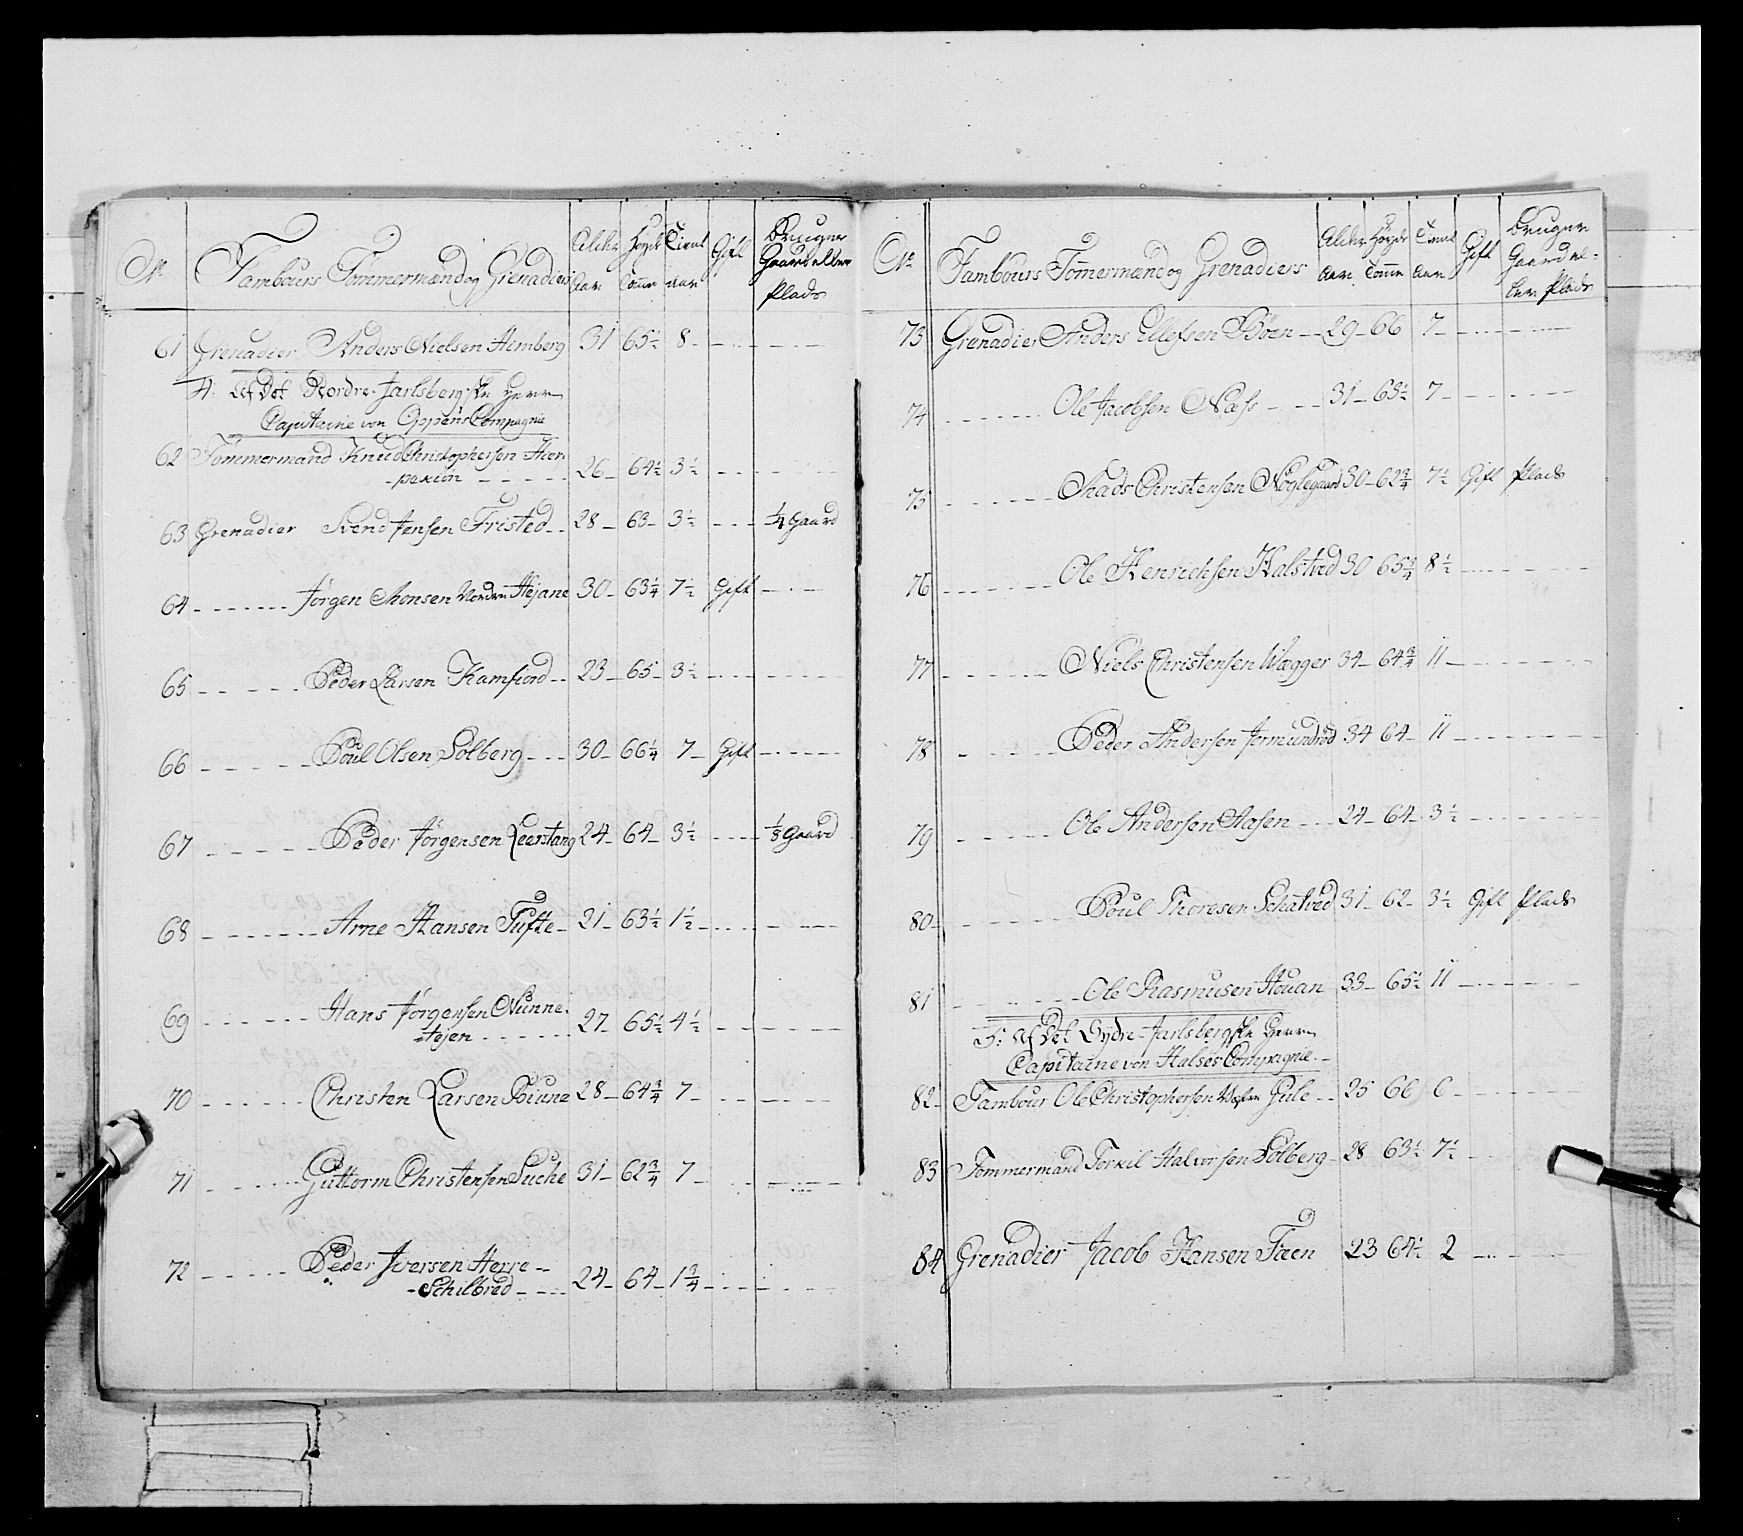 No Tambours Tömmermænd og Grenadiers Alder Aar Høyde Tomme Tient Aar Gift Bruger Gaard eller Plads
61 Grenadier Anders Nielsen Himberg 31 65½ 8
4. Af Det Nordre Jarlsbergske Herr
Capitaine von Oppens Compagnie
62 Tömmermand Knud Christophersen Hier-
26 64½ 3½
63 Grenadier Svend Jensen Fristed 28 63 3½ ¼ Gaard
64 Jörgen Monsen Nordre Hejane 30 63¼ 7½ Gift
65 Peder Larsen Kamfiord 23 65 3½
66 Poul Olsen Solberg 30 66¼ 7 Gift
67 Peder Jörgensen Leerstang 24 64 3½ ⅛ Gaard
68 Arne Hansen Tufte 21 63½ 1½
69 Hans Jörgensen Nunne-
stejen 27 65½ 4½
70 Christen Larsen 28 64¾ 7
71 Guttorm Christensen Suche 31 62¾ 7
72 Peder Iversen Herre-
Schilbred 24 64 1¾
No Tambours Tömmermænd og Grenadiers Alder Aar Høyde Tomme Tient Aar Gift Bruger Gaard el-
ler Plads
73 Grenadier Anders Ellefsen Böen 29 66 7
74 Ole Jacobsen Næss 31 63½ 7
75 Mads Christensen Nöglegaard 30 62¾ 7½ Gift Plads
76 Ole Henrichsen Halsted 30 65¾ 8½
77 Niels Christensen Wægger 34 64¾ 11
78 Peder Andersen Jermundröd 34 64 11
79 Ole Andersen Aasen 24 64 3½
80 Poul Thoresen Schatved 31 62 3½ Gift Plads
81 Ole Rasmusen Houan 33 65½ 11
5: Af Det Sydre Jarlsbergske Herr
Capitaine von Halses Compagnie
82 Tambour Ole Christophersen Vestre Gule 25 66 6
83 Tömmermand Torkil Halvorsen Solberg 28 63½ 7½
84 Grenadier Jacob Hansen Faen 23 64½ 2